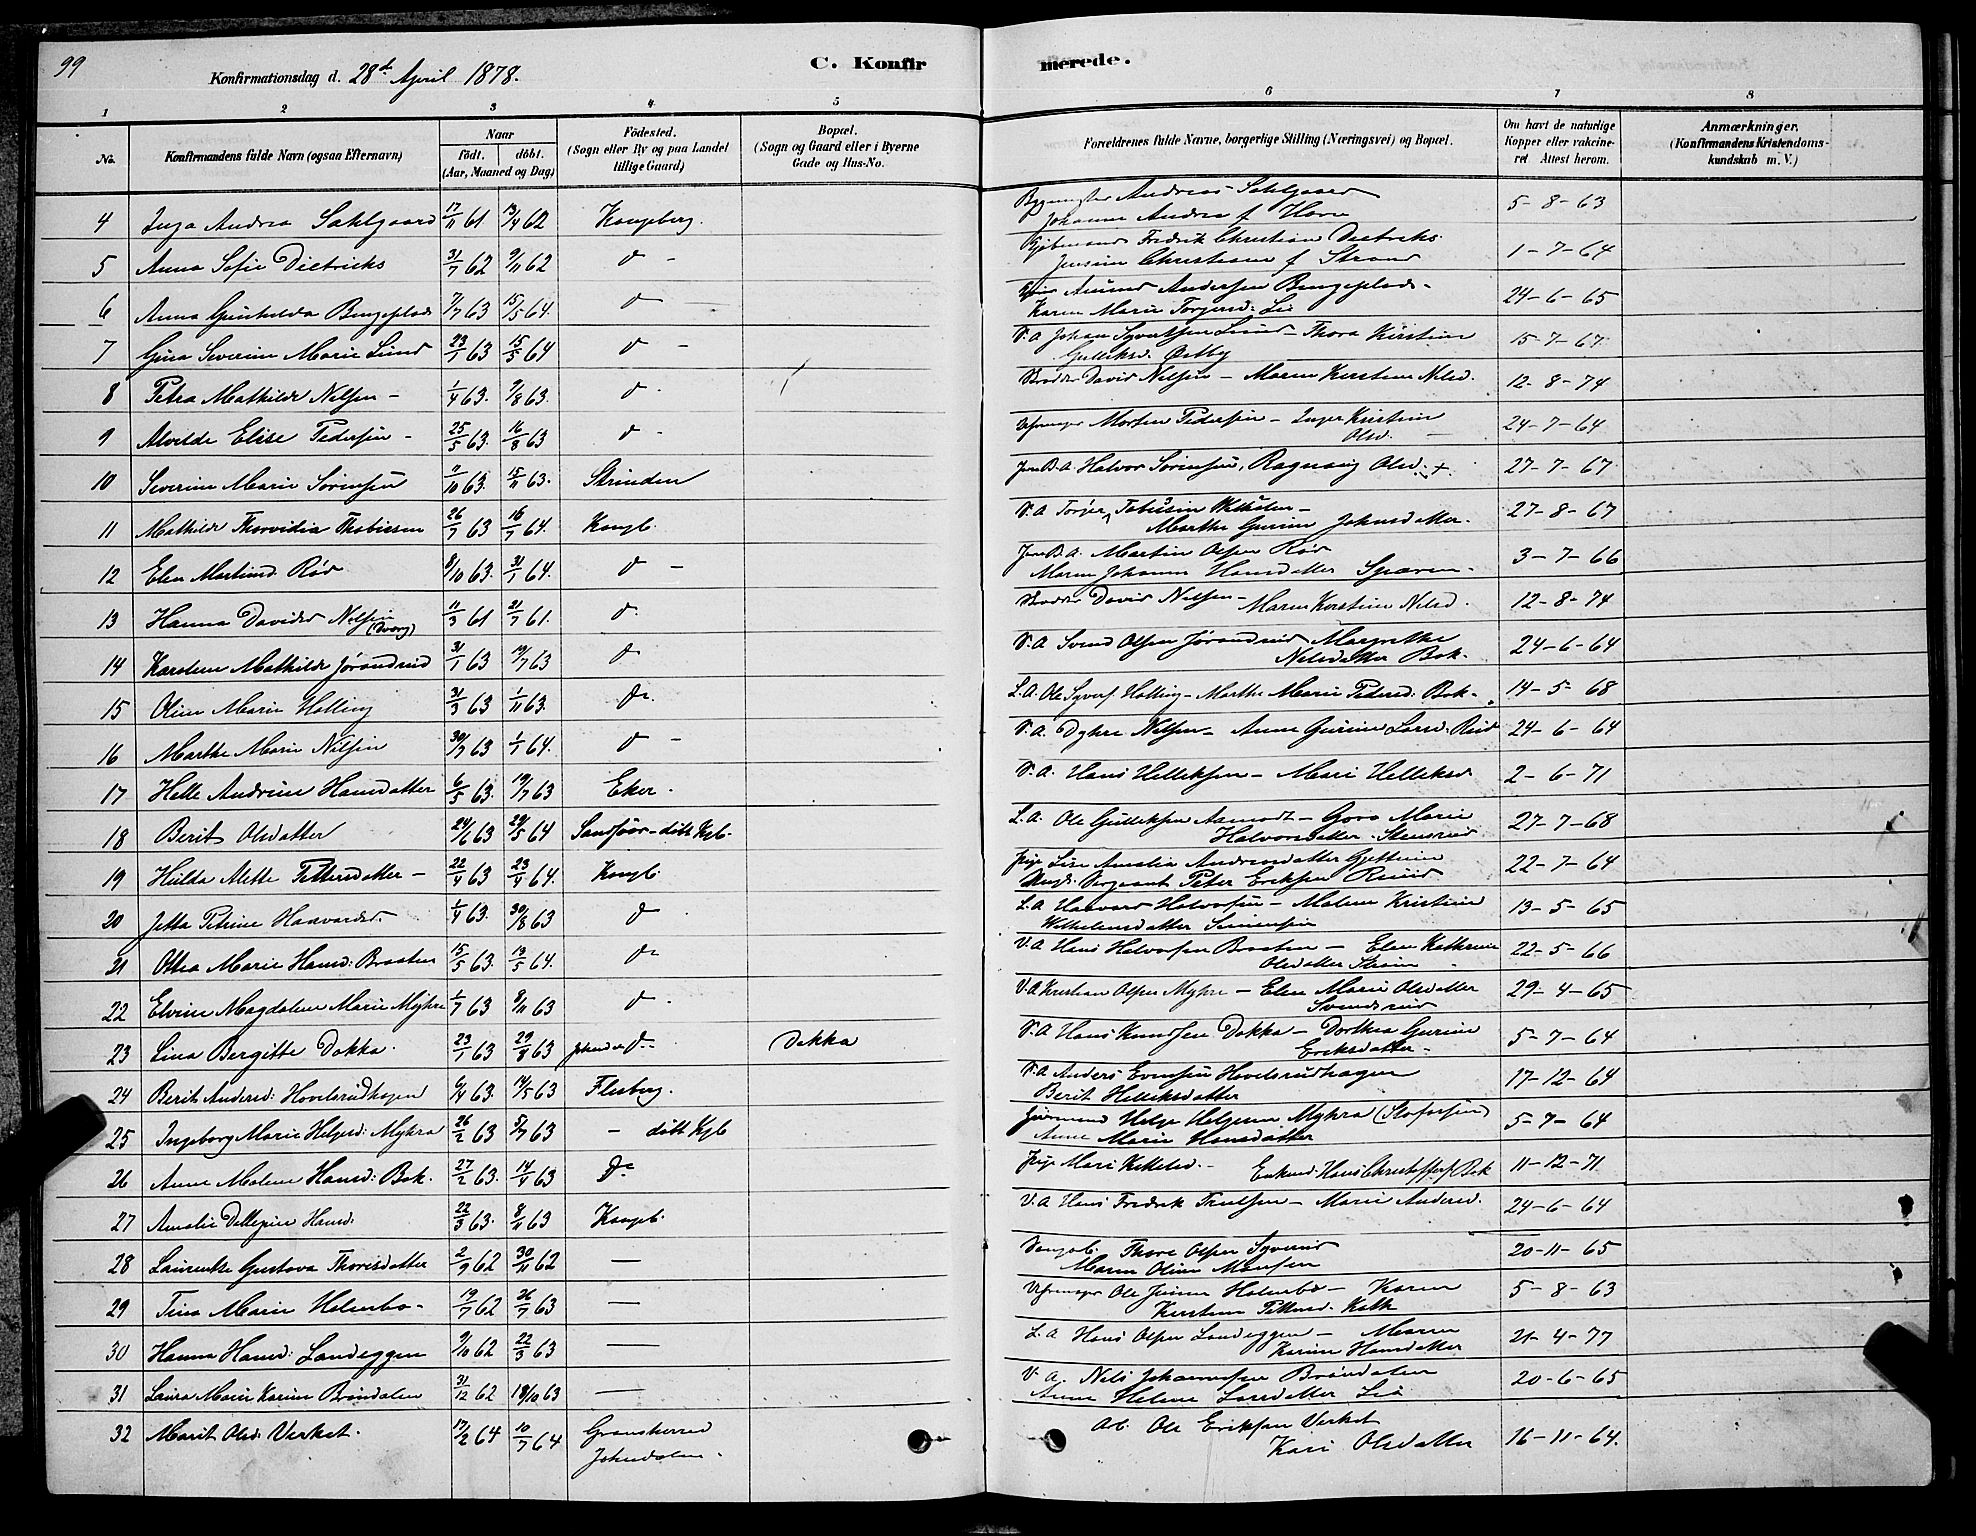 99
Konfirmationsdag d. 28d April 1878.
C. Konfir
merede.
1 2 3 4 5 6 7 8
No.
Konfirmandens fulde Navn (ogsaa Efternavn)
Naar
födt. döbt.
(Aar, Maaned og Dag)
Födested.
(Sogn eller By og paa Landet
tillige Gaard)
Bopæl.
(Sogn og Gaard eller i Byerne
Gade og Hus-No.
Forældrenes fulde Navne, borgerlige Stilling (Næringsvei) og Bopæl.
Om havt de naturlige
Kopper eller vakcine-
ret Attest herom.
Anmærkninger.
(Konfirmandens Kristendoms-
kundskab m. V.)
4 Inga Andrea Sahlgaard 17/11 61 13/4 62 Kongsberg. Andreas Sahlgaard
Johanne Andrea f Horn 5-8-63
5 Anna Sofie Dietrichs 31/7 62 9/11 62 d - Fredrik Christian Dietrichs
Christiane f Strand 1-7-64
6 Anna Gunhilda Bingeplads 7/7 63 15/5 64. d Amund Andersen Bingeplads -
Karen Marie Torgersd: Lie 24-6-65
7 Gina Severine Marie Lund 23/1 63 15/5 64 d - V.A Johan Syvertsen Lund - Thora Kirstine
Gulliksd. Østby 15-7-67
8 Petra Mathilde Nilsen - 1/4 63. 9/8 63. d David Nilsen - Maren Kerstine Nilsd. 12-8-74
9 Alvilde Elise Pedersen - 25/5 63. 16/8 63 d - Morten Pedersen - Inger Kristine
Olsd. - 24-7-64
10 Severine Marie Sørensen 11/10 63. 15/11 63. Strinden Halvor Sørensen, Ragnaig Olsd. + 27-7-67
11 Mathilde Thorvidia Thobiesen 26/7 63 16/7 64. Kongb. V.A Torger Tobiesen
Marthe Gurine Johnsdatter. 27-8-67
12 Elen Martine Røe 8/10 63. 31/1 64. d - Martin Olsen Røe
Maren Johanne Hansdatter 3-7-66
13 Hanna Davida Nilsen 11/3 61 21/7 61. d. David Nilsen - Maren Kerstine Nilsd. 12-8-74
14 Karoline Mathilde Jørandrud 31/1 63 19/7 63 d V.A Svend Olsen Jørandrud Margrethe
Nilsdatter Bok. 24-6-64
15 Oline Marie Halling 31/3 63 1/11 63. do. L.A. Ole Syvers. Halling - Marthe Marie Peders: Bok. 14-5-68
16 Marthe Marie Nilsen 30/9 63 1/1 64. d - V.A. Nilsen - Anne Gurine Larsd: Rud 24-6-64
17 Helle Andrine Hansdatter 6/5 63. 19/7 63 Eker. V.A. Hans Helleksen - Mari Helleksd 2-6-71
18 Berit Olsdatter 24/6 63 29/5 64 Sandsvær - döbt Kgb. L.A. Ole Gulliksen Aamodt - Goro Marie
Halvorsdatter Stensrud 27-7-68
19 Hulda Mette Pettersdatter - 22/4 63 23/4 64. Kongb. Pige Lise Amalia Andreasdatter
Ungk. Sergeant Peter Eriksen Ruud 22-7-64
20 Jetta Petrine Haavardsd 1/4 63. 30/8 63 d L.A Haavard Halvorsen - Malene Kristine
Wilhelmsdatter Simensen 13-5-65
21 Othea Marie Hansd: Braaten 15/5 63. 13/5 64. do V.A Hans Halvorsen Braaten - Elen Kathrine
Olsdatter 22-5-66
22 Elvine Magdalene Marie Myhre 1/7 63 8/11 63 d. V.A Kristian Olsen Myhre - Elen Marie Olsdatter
Svendsrud 29-4-65
23 Lina Bergitte Dokka. 23/1 63 29/8 63 do. Dokka V.A Hans Knudsen Dokka - Dorthea Gurine
Eriksdatter - 5-7-64
24 Berit Andersd: Hovelsrudhagen 6/4 63. 14/5 63 Flesberg. V.A Anders Evensen Hovelsrudhagen
Berit Helleksdatter 17-12-64
25 Ingeborg Marie Helgesd: Myhra 26/2 63 5/7 63 - döbt Kgb Helge Helgesen Myhra
Anne Marie Hansdatter 5-7-64
26 Anne Malene Hansd: Bok. 27/2 63. 14/4 63 Do Pige Mari Kittelsd. - Enkem. Hans Christoffers. Bok 11-12-71
27 Amalie Hansd. 22/3 63. 8/11 63 Kongb. V.A Hans Fredrik Truelsen - Marie Andersd. 24-6-64
28 Laurentse Gustava Thorisdatter 2/9 62 30/11 62 — Thore Olsen
Maren Oline Monsen 20-11-65
29 Tina Marie Holmbo - 19/7 62 26/7 63 — Ole Jensen Holmbo - Karen
Kerstine Pettersd. 5-8-63
30 Hanna Hansd: Landeggen 9/10 62 22/3 63 — L.A Hans Olsen Landeggen - Maren
Karine Hansdatter 21-4-77
31 Laura Marie Karine Brøndalen 31/12 62 18/10 63 — V.A. Nils Johannesen Brøndalen
Anne Helene Larsdatter Lia 20-6-65
32 Marit Olsd: Verket. 17/2 64 10/7 64 Gransherred
Johndalen. Arb. Ole Eriksen Verket
Kari Olsdatter 16-11-64.